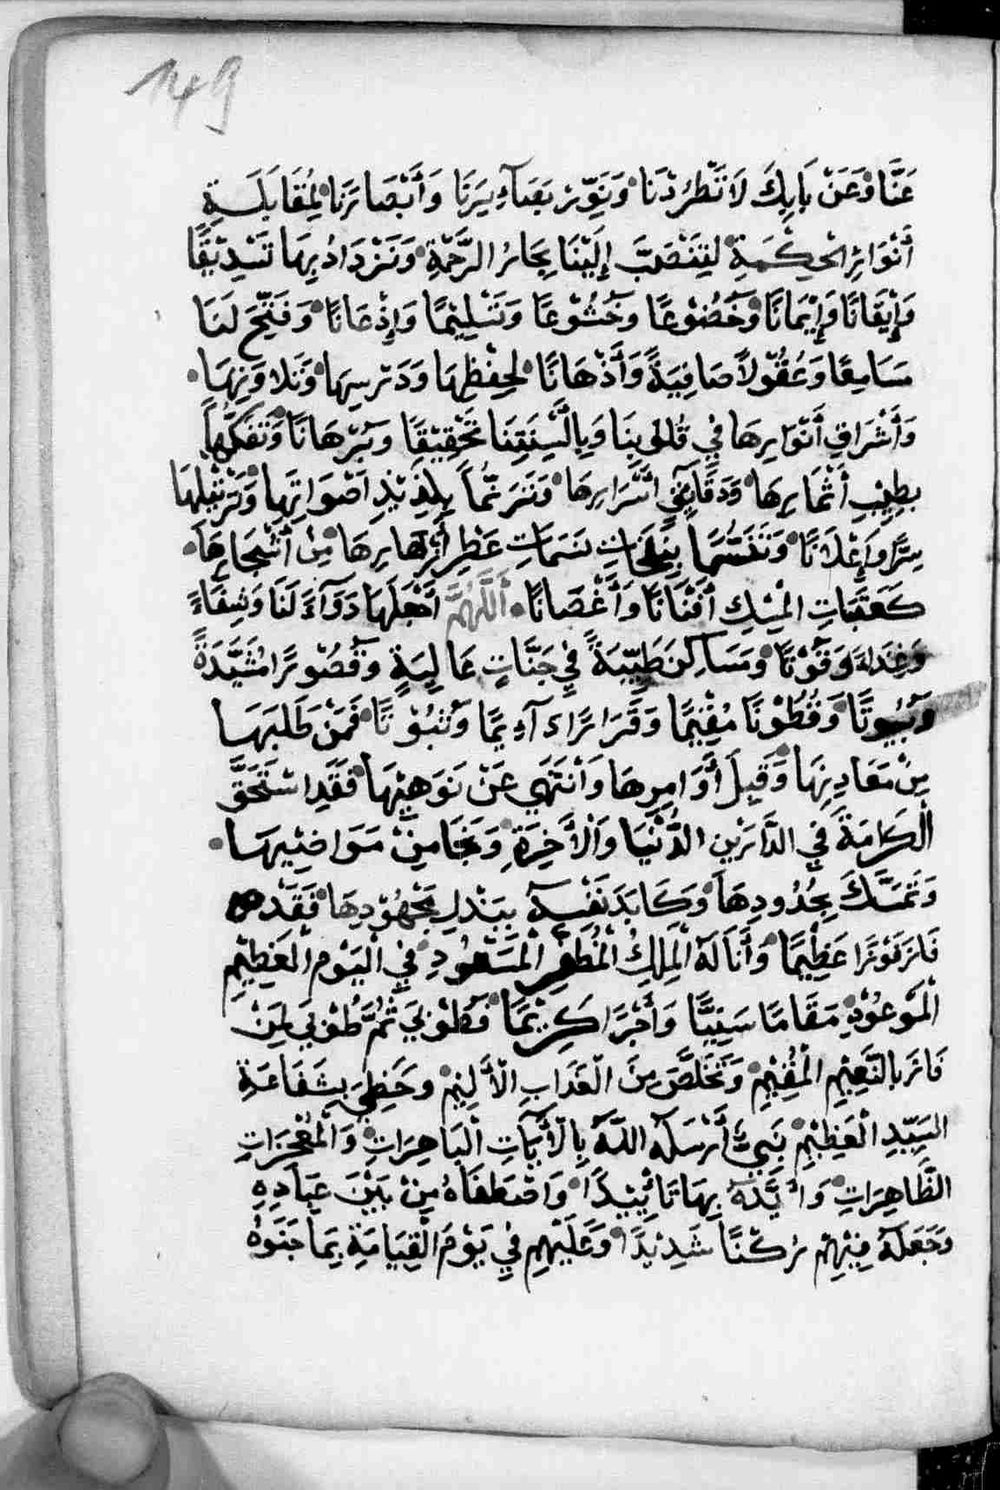 149
عَنَّا وَعَنْ بَابِكَ لَا تَطْرُدْنَا وَنَوِّرْ بَصَآءِيرَنَا وَأَبْصَارَنَا لِمُقَابَلَةِ
أَنْوَارِ الْحِكْمَةِ لِتَنْصَبَّ إِلَيْنَا بِحَارُ الرَّحْمَةِ وَنَزْدَادُ بِهَا تَسْدِيْقًا
وَإِيْقَانًا وَإِيْمَانًا وَخُضُوْعًا وَخُشُوْعًا وَتَسْلِيْمًا وَإِذْعَانًا وَفَتِّحْ لَنَا
مَسَامِعًا وَعُقُوْلًا صَافِيَةً وَأَذْهَانًا لِحِفْظِهَا وَدَرْسِهَا وَتَلَاوَتِهَا
وَأَشْرَاقِ أَنْوَارِهَا فِي قُلُوبِنَا وَبِأَلْسِنَتِنَا تَحْقِيْقًا وَبُرْهَانًا وَتَفَكُّهًا
بِطِيْبِ أَثْمَارِهَا وَدَقَآيِقِ أَسْرَارِهَا وَتَرَنُّمًا بِلَذِيْذِ اَصْوَاتِهَا وَتَرْتِيْلِهَا
سِرًّا وَإِعْلَانًا وَتَنَسُّمًا بِنَفَحَاتِ نَسَمَاتِ عَطِرِ أَزْهَارِهَا مِنْ أَشْجَارِهَا
كَعَبَقَاتِ الْمِسْكِ أَفْنَانًا وَأَغْصَانًا أَللَّهُمَّ اجْعَلْهَا دَوَآءً لَنَا وَشِفَاءً
وَغِذَاءً وَقُوْتًا وَمَسَاكِنَ طَيِّبَةً فِي جَنَّاتٍ عَالِيَةٍ وَقُصُوْرًا مُشَيَّدَةً
وَبُيُوتًا وَقُطُوْنًا مُقِيْمًا وَقَرَارًا دَآءِيمًا وَثُبُوْتًا فَمَنْ طَلَبَهَا
مِنْ مَعَادِنِهَا وَقَبِلَ أَوَامِرِهَا وَانْتَهَى عَنْ نَوَهِيْهَا فَقَدِ اسْتَحَقَّ
الْكَرَامَةَ فِي الدَّارَيْنِ الدُّنْيَا وَالْأَخِرَةِ وَنَجَا مِنْ مَوَاضِيْهَا
وَتَمَسَّكَ بِحُدُودِهَا وَكَابَدَ نَفْسَهُ بِبَذْلِ مَجْهُوْدِهَا فَقَدْ
فَازَ فَوْزًا عَظِيْمًا وَأَنَالَهُ الْمَلِكُ الْمُظْهِرُ الْمَسْعُودِ فِي الْيَوْمِ الْعَظِيْمِ
الْمَوْعُوْدِ مَقَامًا سَنِيًّا وَأَجْرًا كَرِيْمًا فَطُوْبَى ثُمَّ طُوْبَى لِمَنْ
فَازَ بِالنَّعِيْمِ الْمُقِيْمِ وَتَخَلَّصَ مِنَ الْعَذَابِ الْأَلِيْمِ وَحَظِيَ بِشَفَاعَةِ
السَيِّدِ الْعَظِيْمِ نَبِيٍّ أَرْسَلَهُ اللَّهُ بِالْأَيَآتِ الْبَاهِرَاتِ وَالْمُعْجِزَاتِ
الظَّاهِرَاتِ وَأَيَّدَهُ بِهَا تَأْيِيْدًا وَاصْطَفَاهُ مِنْ بَيْنَ عِبَادِهِ
وَجَعَلَهُ فِيْهِمْ رُكْنًا شَدِيْدًا وَعَلَيْهِمْ فِي يَوْمُ الْقِيَامَةِ بِمَا جَنَوْهُ